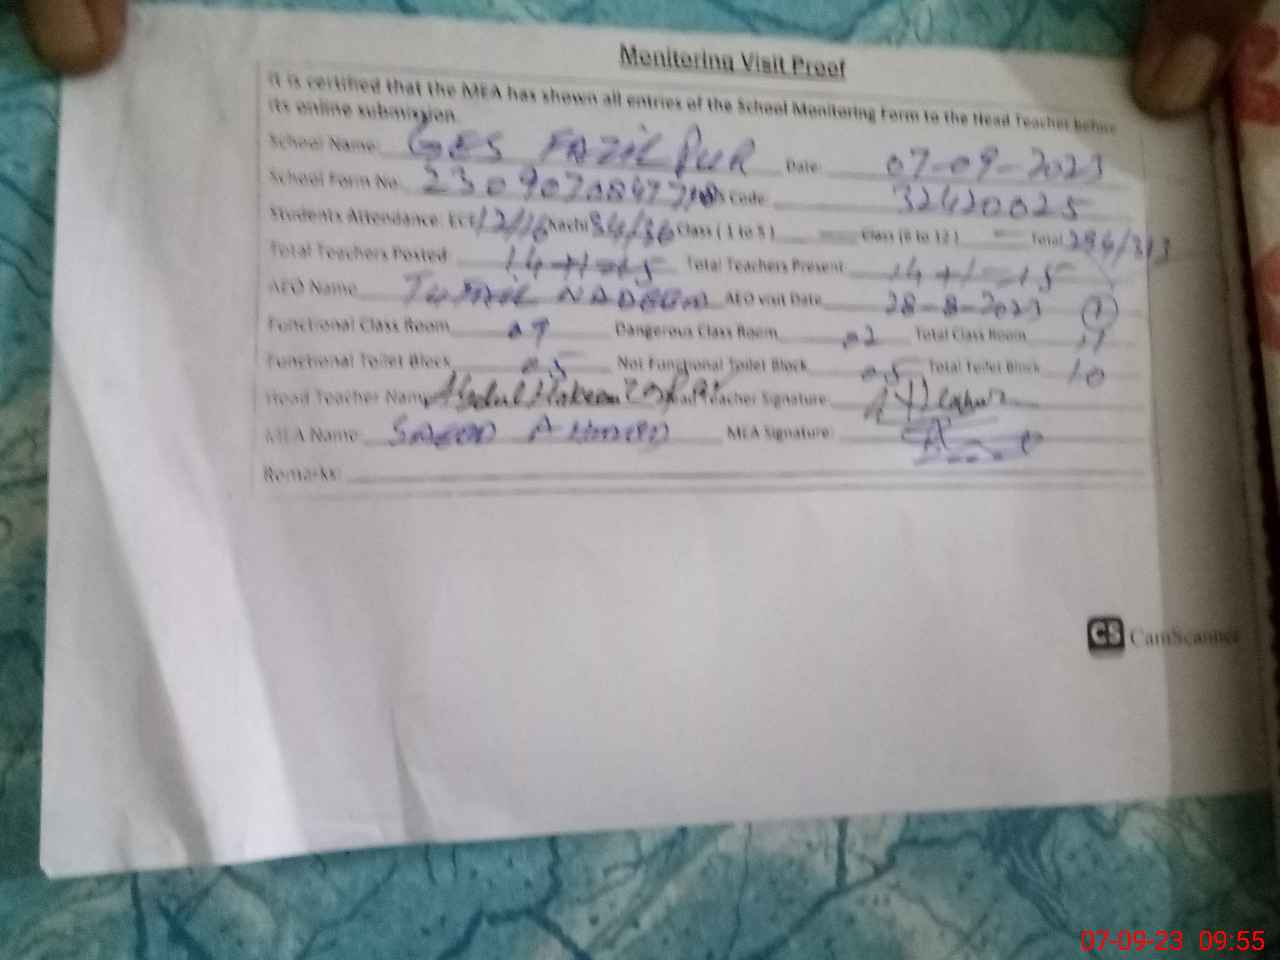 Monitoring Visit Proof
It is certified that the MEA has shown all entries of the School Monitoring Form to the Head Teacher before
its online submission.
School Name: GES FAZIL PUR Date: 07-09-2023
School Form No. Code 32420025
Students Attendance: ECE 12/16 Kachi 34/36 Class (1 to 5) — Class (6 to 12) — Total 284/313
Total Teachers Posted: 14+1=15 Total Teachers Present 14+1=15
AEO Name TUFAIL NADEEM AEO visit Date 28-8-2023
Functional Class Room 09 Dangerous Class Room 02 Total Class Room
Functional Toilet Block 05 Not Functional Toilet Block 05 Total Toilet Block 10
Head Teacher Name Abdul Hakeem Head Teacher Signature:
MEA Name: SAEED AHMED MEA Signature:
Remarks:
CS CamScanner
07-09-23 09:55